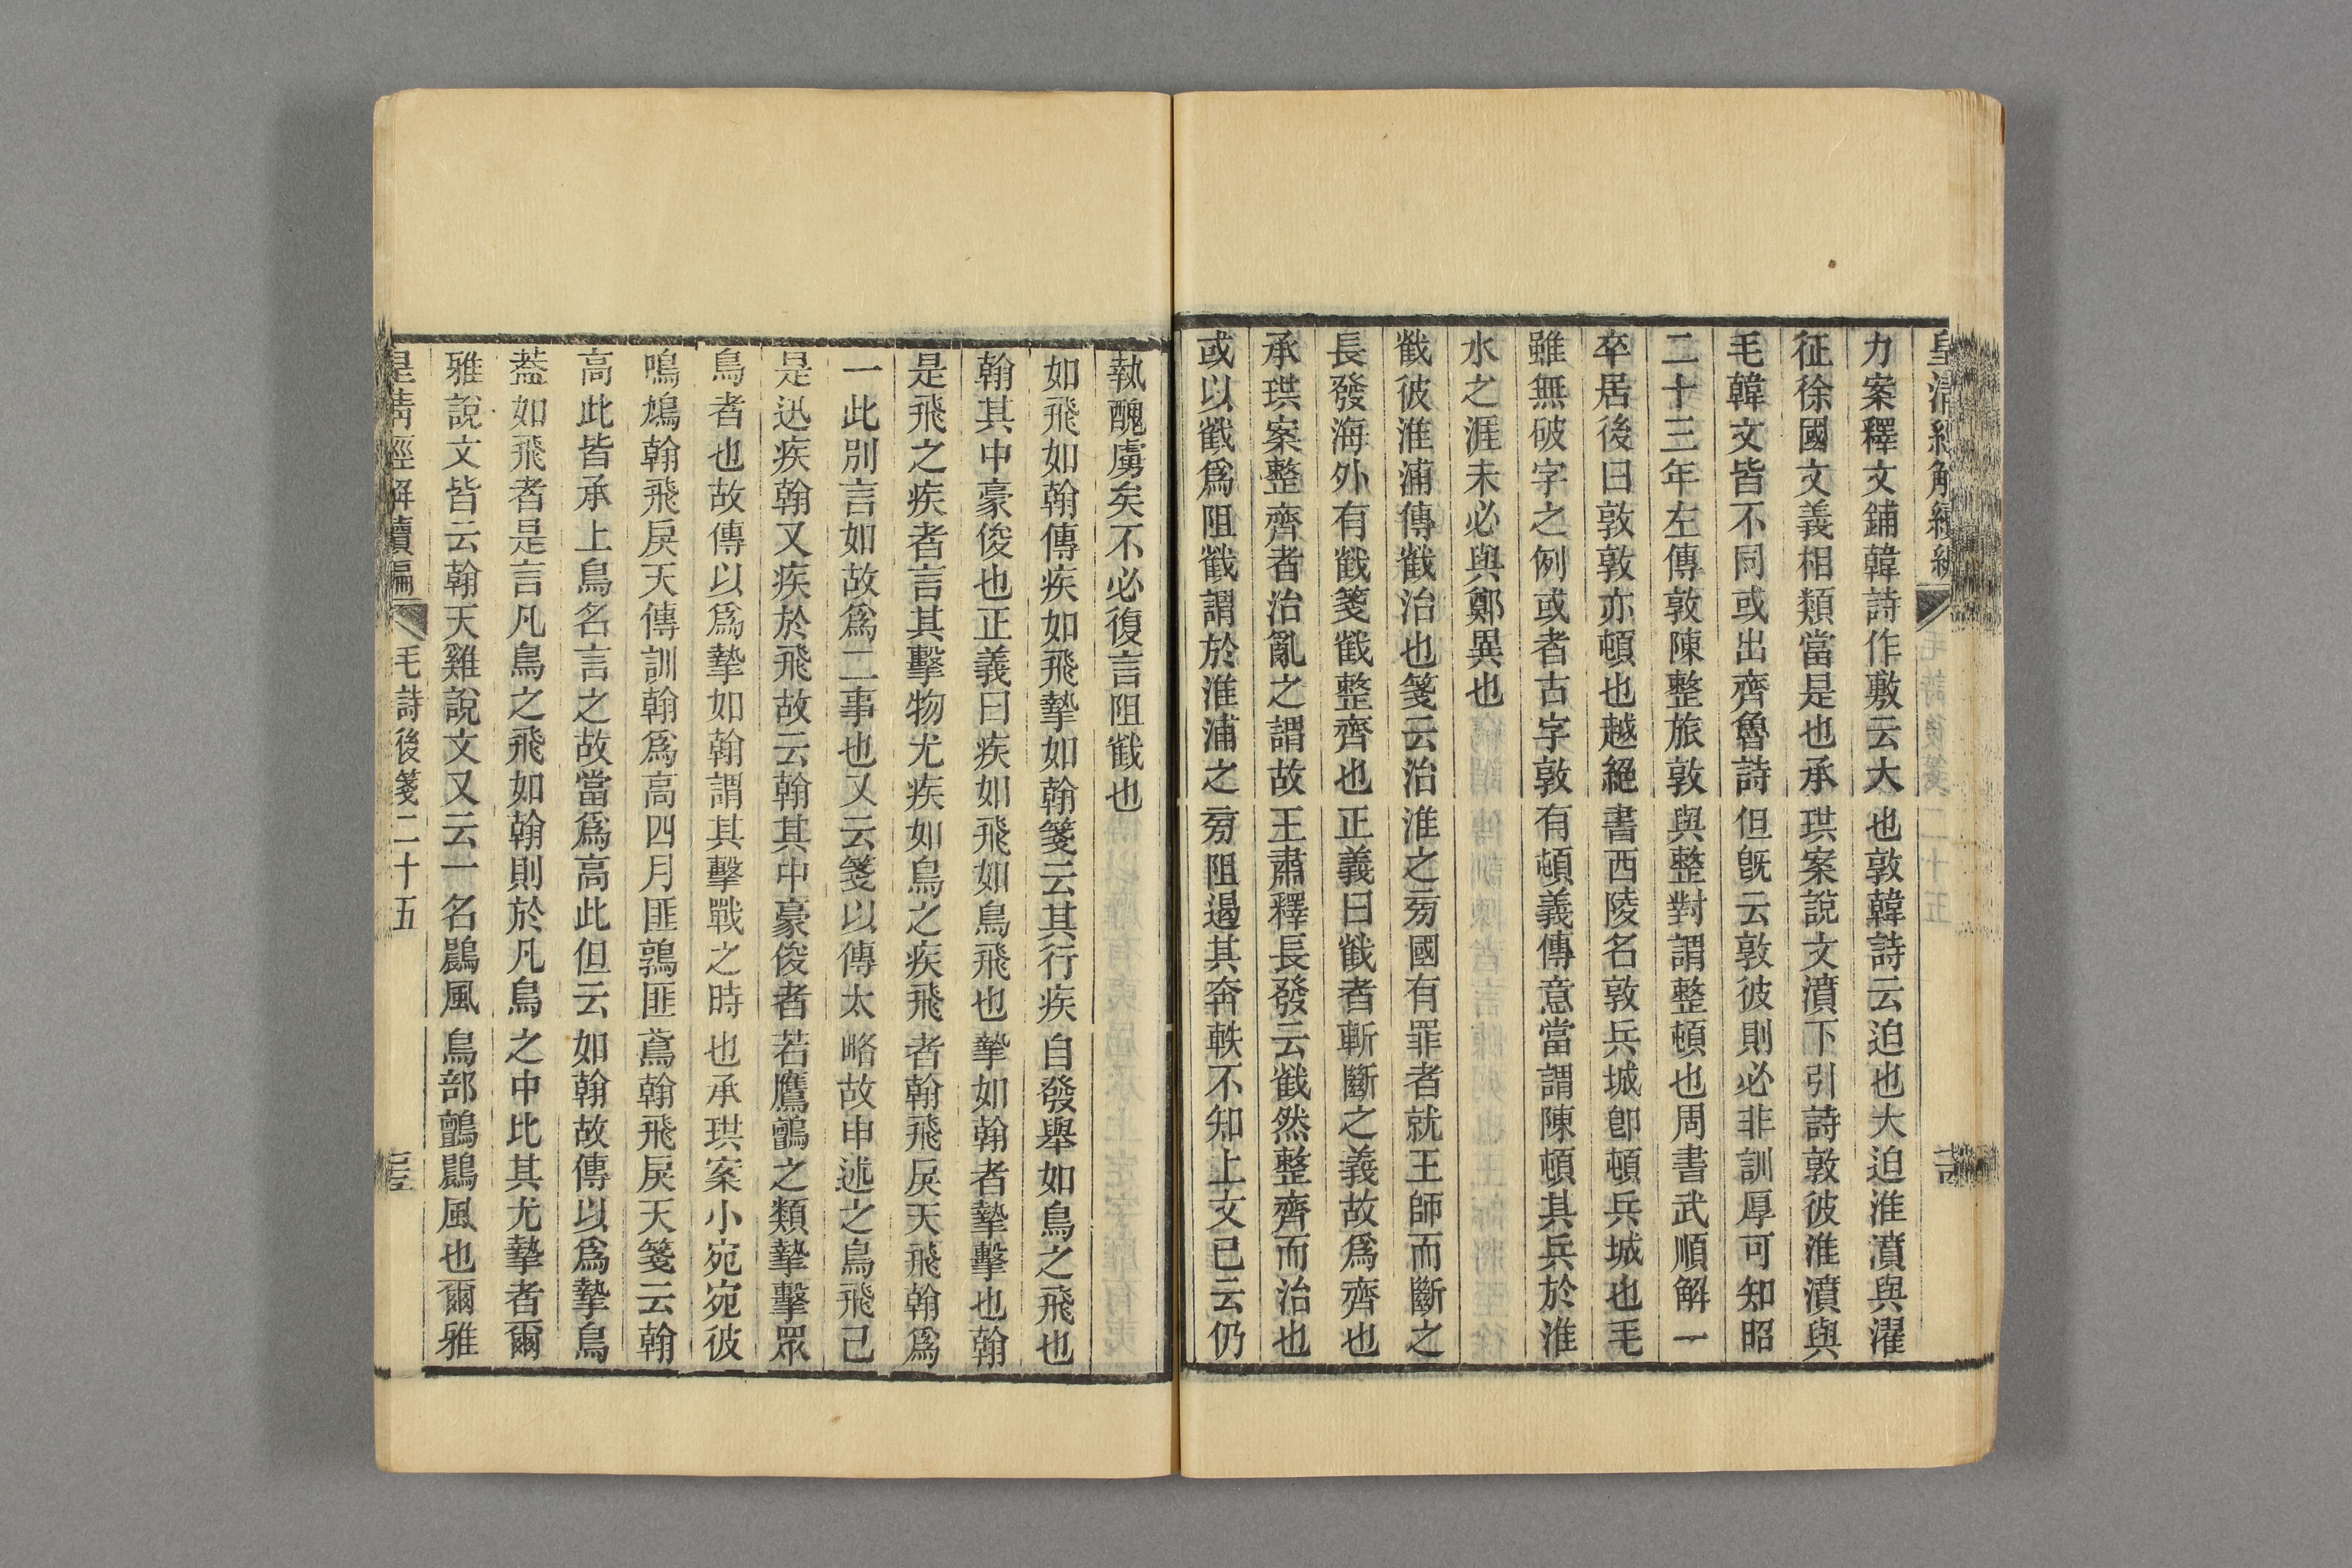 皇清經解續編
力案釋文鋪韓詩作敷云大也敦韓詩云迫也大迫淮濆與濯
征徐國文義相類當是也承珙案說文濆下引詩敦彼淮濆與
毛韓文皆不同或出齊魯詩但旣云敦彼則必非訓厚可知昭
二十三年左傳敦陳整旅敦與整對謂整頓也周書武順解一
卒居後曰敦敦亦頓也越絕書西陵名敦兵城卽頓兵城也毛
雖無破字之例或者古字敦有頓義傳意當謂陳頓其兵於淮
水之涯未必與鄭異也
截彼淮浦傳截治也箋云治淮之㫄國有罪者就王師而斷之
長發海外有截箋截整齊也正義曰截者斬斷之義故爲齊也
承珙案整齊者治亂之謂故王肅釋長發云截然整齊而治也
或以截爲阻截謂於淮浦之㫄阻遏其奔軼不知上文已云仍
執醜虜矣不必復言阻截也
如飛如翰傳疾如飛摯如翰箋云其行疾自發舉如鳥之飛也
翰其中豪俊也正義曰疾如飛如鳥飛也摯如翰者摯擊也翰
是飛之疾者言其擊物尤疾如鳥之疾飛者翰飛戾天飛翰爲
一此別言如故爲二事也又云箋以傳太略故申述之鳥飛已
是迅疾翰又疾於飛故云翰其中豪俊者若鷹鸇之類摯擊眾
鳥者也故傳以爲摯如翰謂其擊戰之時也承珙案小宛宛彼
鳴鳩翰飛戾天傳訓翰爲高四月匪鶉匪鳶翰飛戾天箋云翰
高此皆承上鳥名言之故當爲高此但云如翰故傳以爲摯鳥
葢如飛者是言凡鳥之飛如翰則於凡鳥之中比其尤摯者爾
雅說文皆云翰天雞說文又云一名鷐風鳥部鸇鷐風也爾雅
皇清經解續編 毛詩後箋二十五